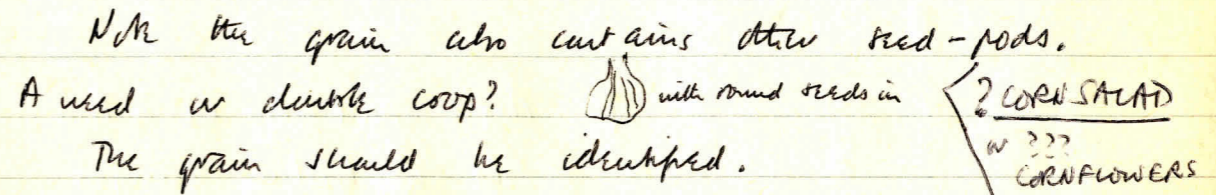 Note the grain also contains other seed-pods.
A weed or double crop? with round seeds in ? CORN SALAD
or ???
CORNFLOWERS
The grain should be identified.